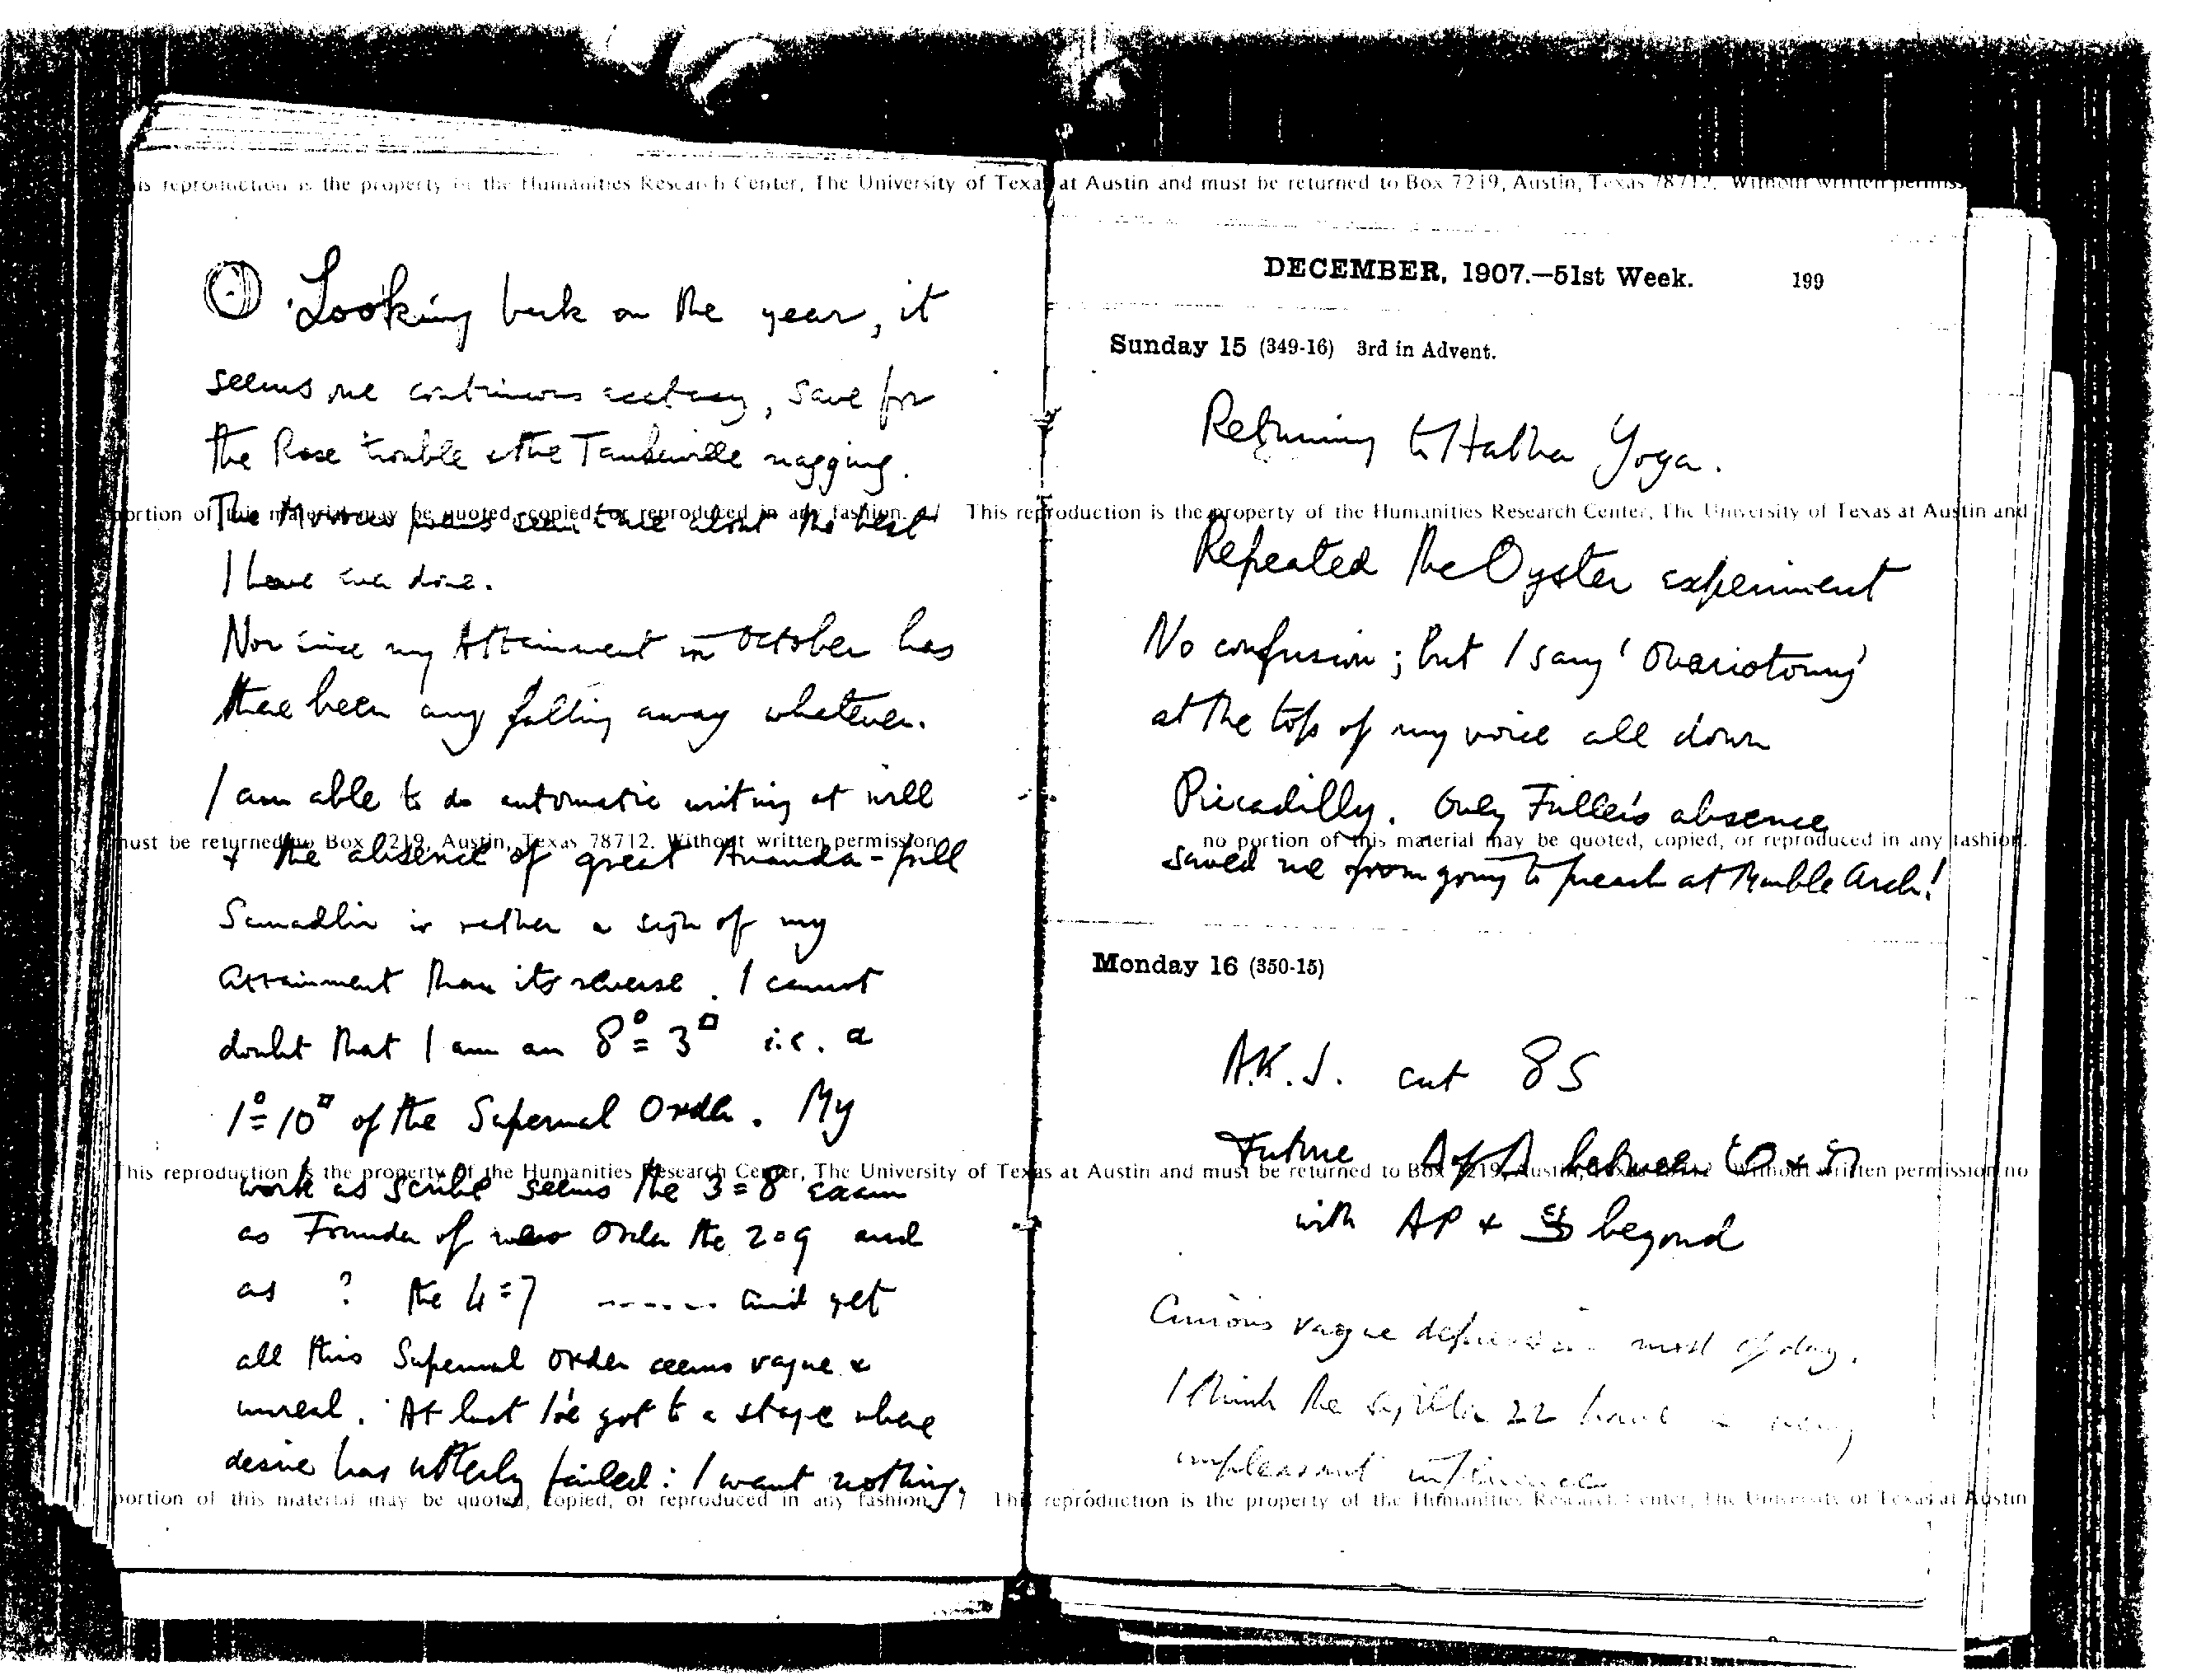 This reproduction is the property of the Humanities Research Center, The University of Texas at Austin and must be returned to Box 7219, Austin, Texas 78712. Without written permiss
Looking back on the year, it
seems me continuous ecstasy, save for
the Rose trouble & the Tankerville nagging.
portion of this material may be quoted, copied, or reproduced in any fashion.
The Morocco poems seem to me about the best
I have ever done.
Nor since my Attainment in October has
there been any falling away whatever.
I am able to do automatic writing at will
must be returned to Box 7219, Austin, Texas 78712. Without written permission
& the absence of great Ananda-full
Samadhi is rather a sign of my
attainment than its reverse. I cannot
doubt that I am an 8°=3□ i.e. a
1°=10□ of the Supernal Order. My
This reproduction is the property of the Humanities Research Center, The University of Texas at Austin and must be returned to Box 7219, Austin, Texas 78712 Without written permission no
work as scribe seems the 3=8 exam
as Founder of new Order the 2=9 and
as ? the 4=7 ------ and yet
all this Supernal Order seems vague &
unreal. At last I've got to a stage where
desire has utterly failed: I want nothing.
portion of this material may be quoted, copied, or reproduced in any fashion.
DECEMBER, 1907.—51st Week. 199
Sunday 15 (349-16) 3rd in Advent.
Returning to Hatha Yoga.
This reproduction is the property of the Humanities Research Center, The University of Texas at Austin and
Repeated the Oyster experiment
No confusion; but I sang 'Ovariotomy'
at the top of my voice all down
Piccadilly. Only Fuller's absence
no portion of this material may be quoted, copied, or reproduced in any fashion.
saved me from going to preach at Marble Arch!
Monday 16 (350-15)
A.K.J. cut 85
Future between &
with AP & beyond
Curious vague depression most of day.
I think the 22 have a very
unpleasant influence
This reproduction is the property of the Humanities Research Center, The University of Texas at Austin